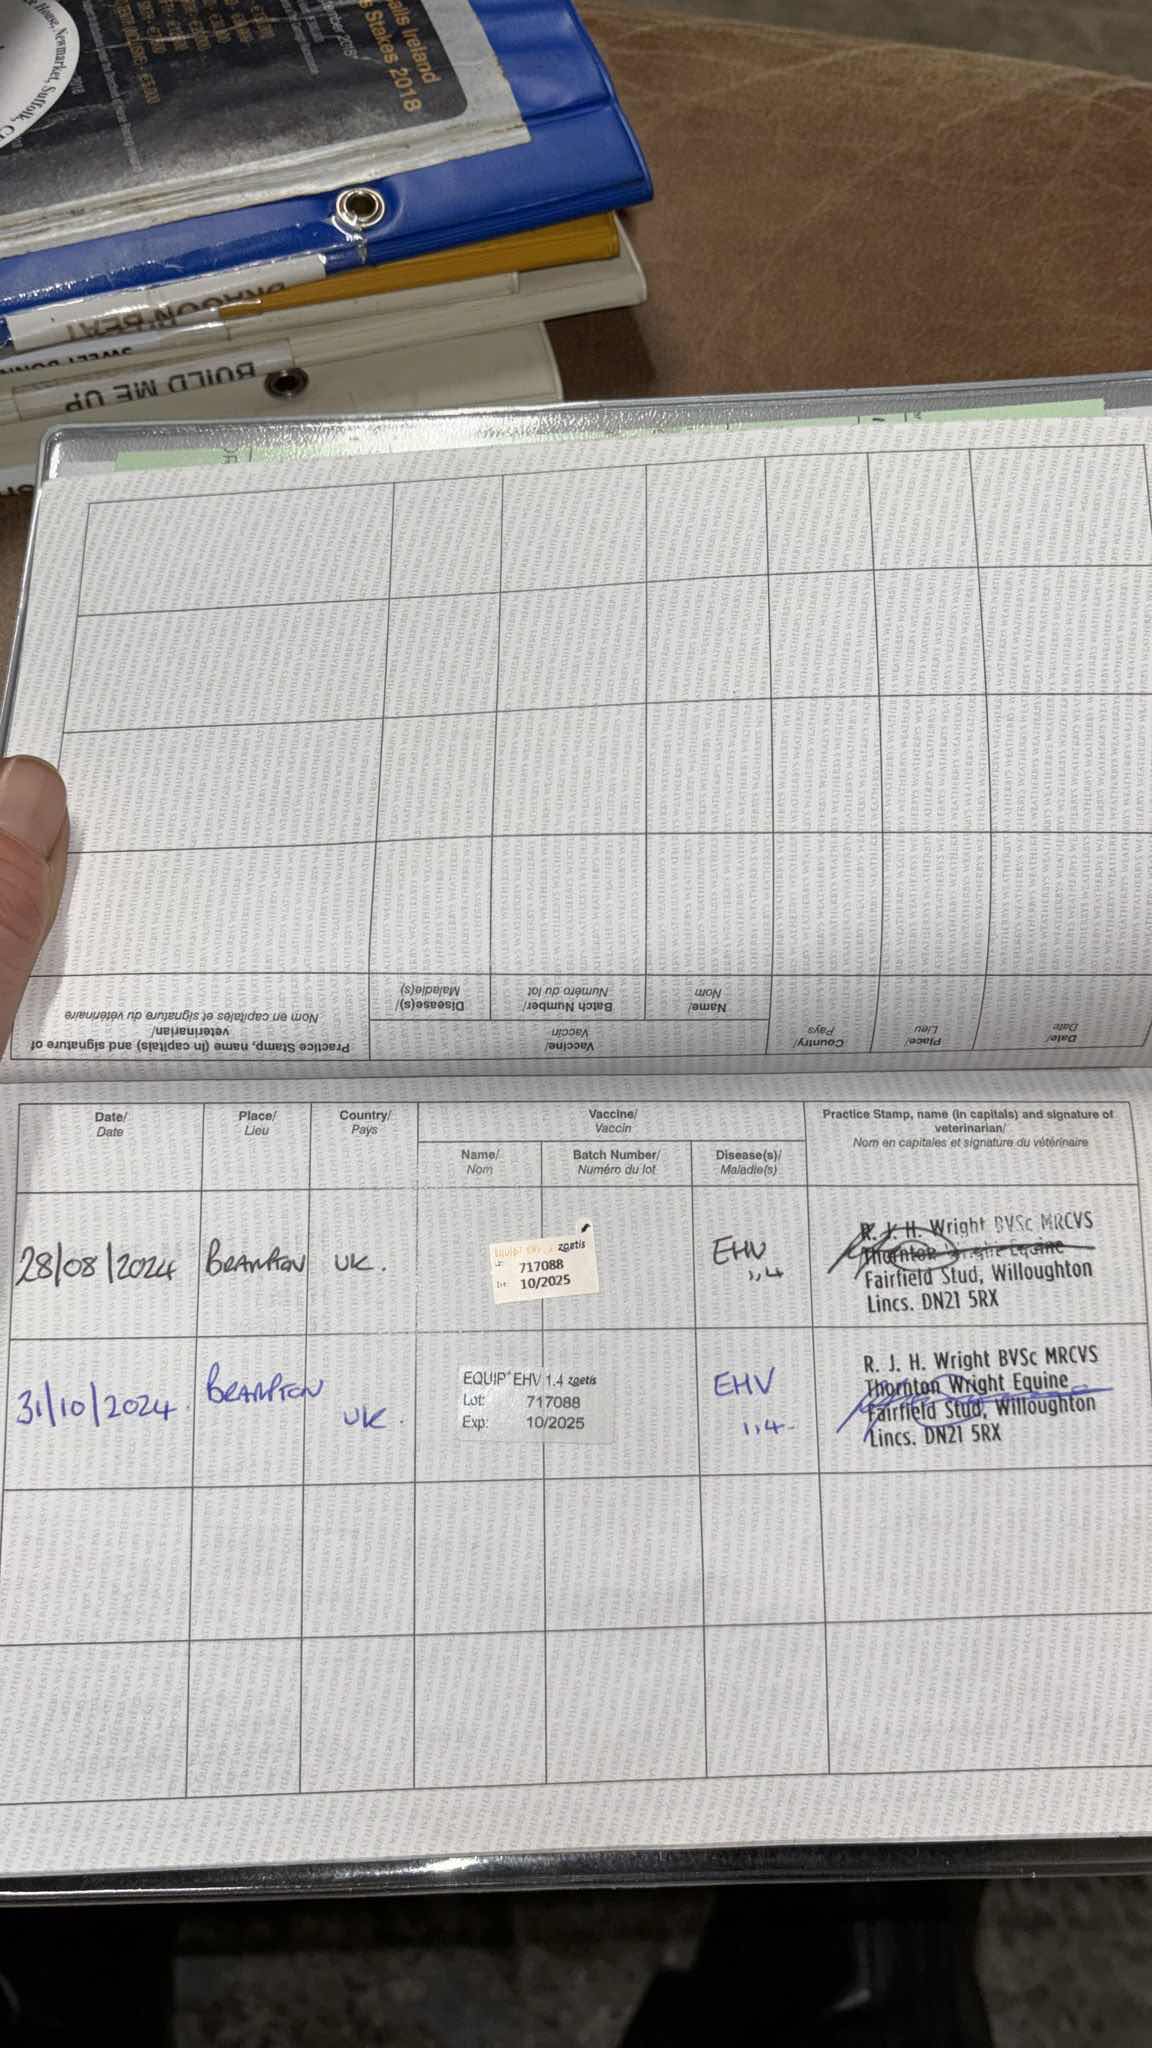 House, Newmarket, Suffolk,
Ireland
Stakes 2018
DRAGON BEAT
BUILD ME UP
Practice Stamp, name (in capitals) and signature of
veterinarian/
Nom en capitales et signature du vétérinaire
Vaccine/
Vaccin
Disease(s)/
Maladie(s)
Batch Number/
Numéro du lot
Name/
Nom
Country/
Pays
Place/
Lieu
Date/
Date
Date/
Date
Place/
Lieu
Country/
Pays
Vaccine/
Vaccin
Practice Stamp, name (in capitals) and signature of
veterinarian/
Nom en capitales et signature du vétérinaire
Name/
Nom
Batch Number/
Numéro du lot
Disease(s)/
Maladie(s)
28/08/2024 BRAMPTON UK.
zoetis
717088
10/2025
EHV
1,4
R. J. H. Wright BVSc MRCVS
Thornton Wright Equine
Fairfield Stud, Willoughton
Lincs. DN21 5RX
31/10/2024. BRAMPTON UK.
EQUIP EHV 1.4 zoetis
Lot: 717088
Exp: 10/2025
EHV
1,4-
R. J. H. Wright BVSc MRCVS
Thornton Wright Equine
Fairfield Stud, Willoughton
Lincs. DN21 5RX